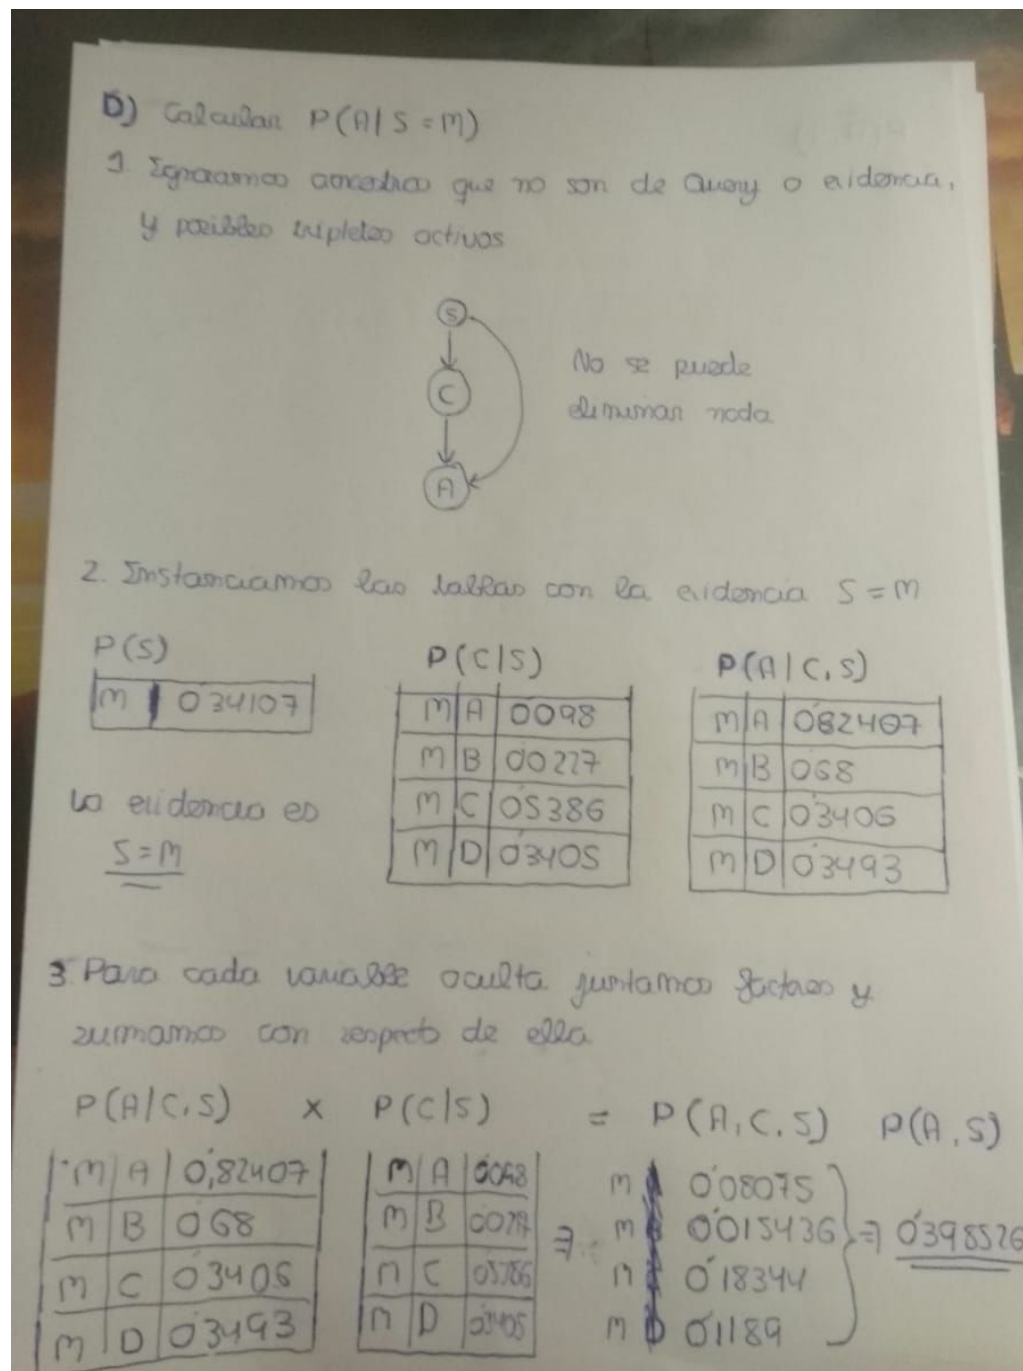 D) Calcular P(A|S=M)
1. Ignoramos ancestros que no son de Query o evidencia,
y posibles tripletes activos
S
C
A
No se puede
eliminar nada
2. Instanciamos las tablas con la evidencia S=M
P(S)
M 0'34107
La evidencia es
S=M
P(C|S)
M A 0'098
M B 0'0227
M C 0'5386
M D 0'3405
P(A|C,S)
M A 0'82407
M B 0'68
M C 0'3406
M D 0'3493
3. Para cada variable oculta juntamos factores y
sumamos con respecto de ella
P(A|C,S) x P(C|S) = P(A,C,S) P(A,S)
M A 0,82407 M A M 0'08075
M B 0'68 M B ⇒ M 0'015436 ⇒ 0'398526
M C 0'3406 M C M 0'18344
M D 0'3493 M D M D 0'1189